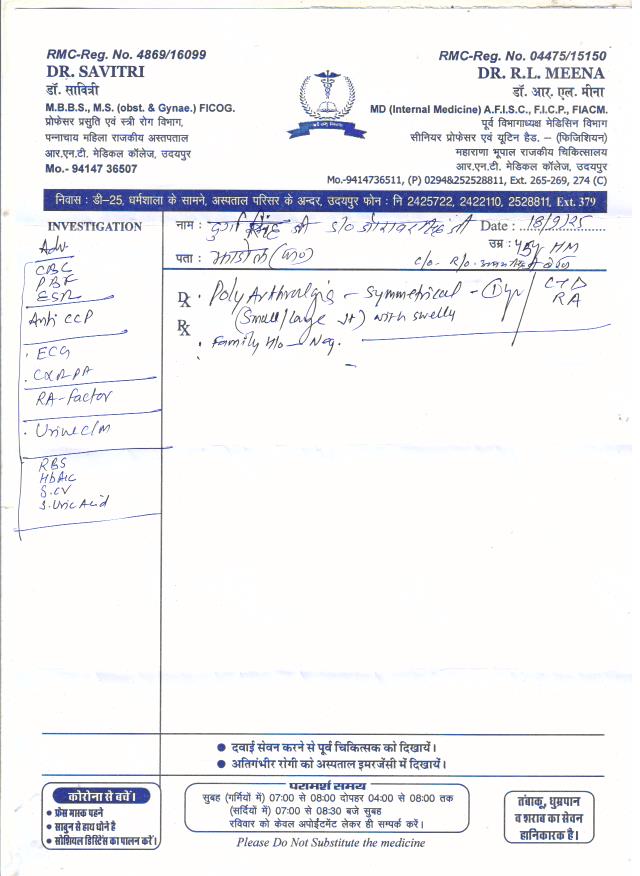 RMC-Reg. No. 4869/16099
DR. SAVITRI
डॉ. सावित्री
M.B.B.S., M.S. (obst. & Gynae.) FICOG.
प्रोफेसर प्रसुति एवं स्त्री रोग विभाग,
पन्नाचाय महिला राजकीय अस्तपताल
आर.एन.टी. मेडिकल कॉलेज, उदयपुर
Mo.- 94147 36507
RMC-Reg. No. 04475/15150
DR. R.L. MEENA
डॉ. आर. एल. मीना
MD (Internal Medicine) A.F.I.S.C., F.I.C.P., FIACM.
पूर्व विभागाध्यक्ष मेडिसिन विभाग
सीनियर प्रोफेसर एवं यूटिन हैड. – (फिजिशियन)
महाराणा भूपाल राजकीय चिकित्सालय
आर.एन.टी. मेडिकल कॉलेज, उदयपुर
Mo.-9414736511, (P) 0294&252528811, Ext. 265-269, 274 (C)
निवास : डी-25, धर्मशाला के सामने, अस्पताल परिसर के अन्दर, उदयपुर फोन : नि 2425722, 2422110, 2528811, Ext. 379
INVESTIGATION
Adv
CBC
PBF
ESR
Anti CCP
ECG
CXR PA
RA-factor
Urine C/M
RBS
HbA1c
S. Uric Acid
नाम : S/o Date : 18/9/25
उम्र : 45y HM
पता :
Dx . Poly Arthralgis – Symmetrical – 1 yr / CTD
(Small/large Jt) with swelly RA
Rx
. Family H/o – Neg.
दवाई सेवन करने से पूर्व चिकित्सक को दिखायें।
अतिगंभीर रोगी को अस्पताल इमरजेंसी में दिखायें।
कोरोना से बचें।
फ्रेस मास्क पहने
साबुन से हाथ धोने है
सोशियल डिस्टिेंस का पालन करें।
परामर्श समय
सुबह (गर्मियों में) 07:00 से 08:00 दोपहर 04:00 से 08:00 तक
(सर्दियों में) 07:00 से 08:30 बजे सुबह
रविवार को केवल अपोईटमेंट लेकर ही सम्पर्क करें।
Please Do Not Substitute the medicine
तंबाकू, धुम्रपान
व शराब का सेवन
हानिकारक है।